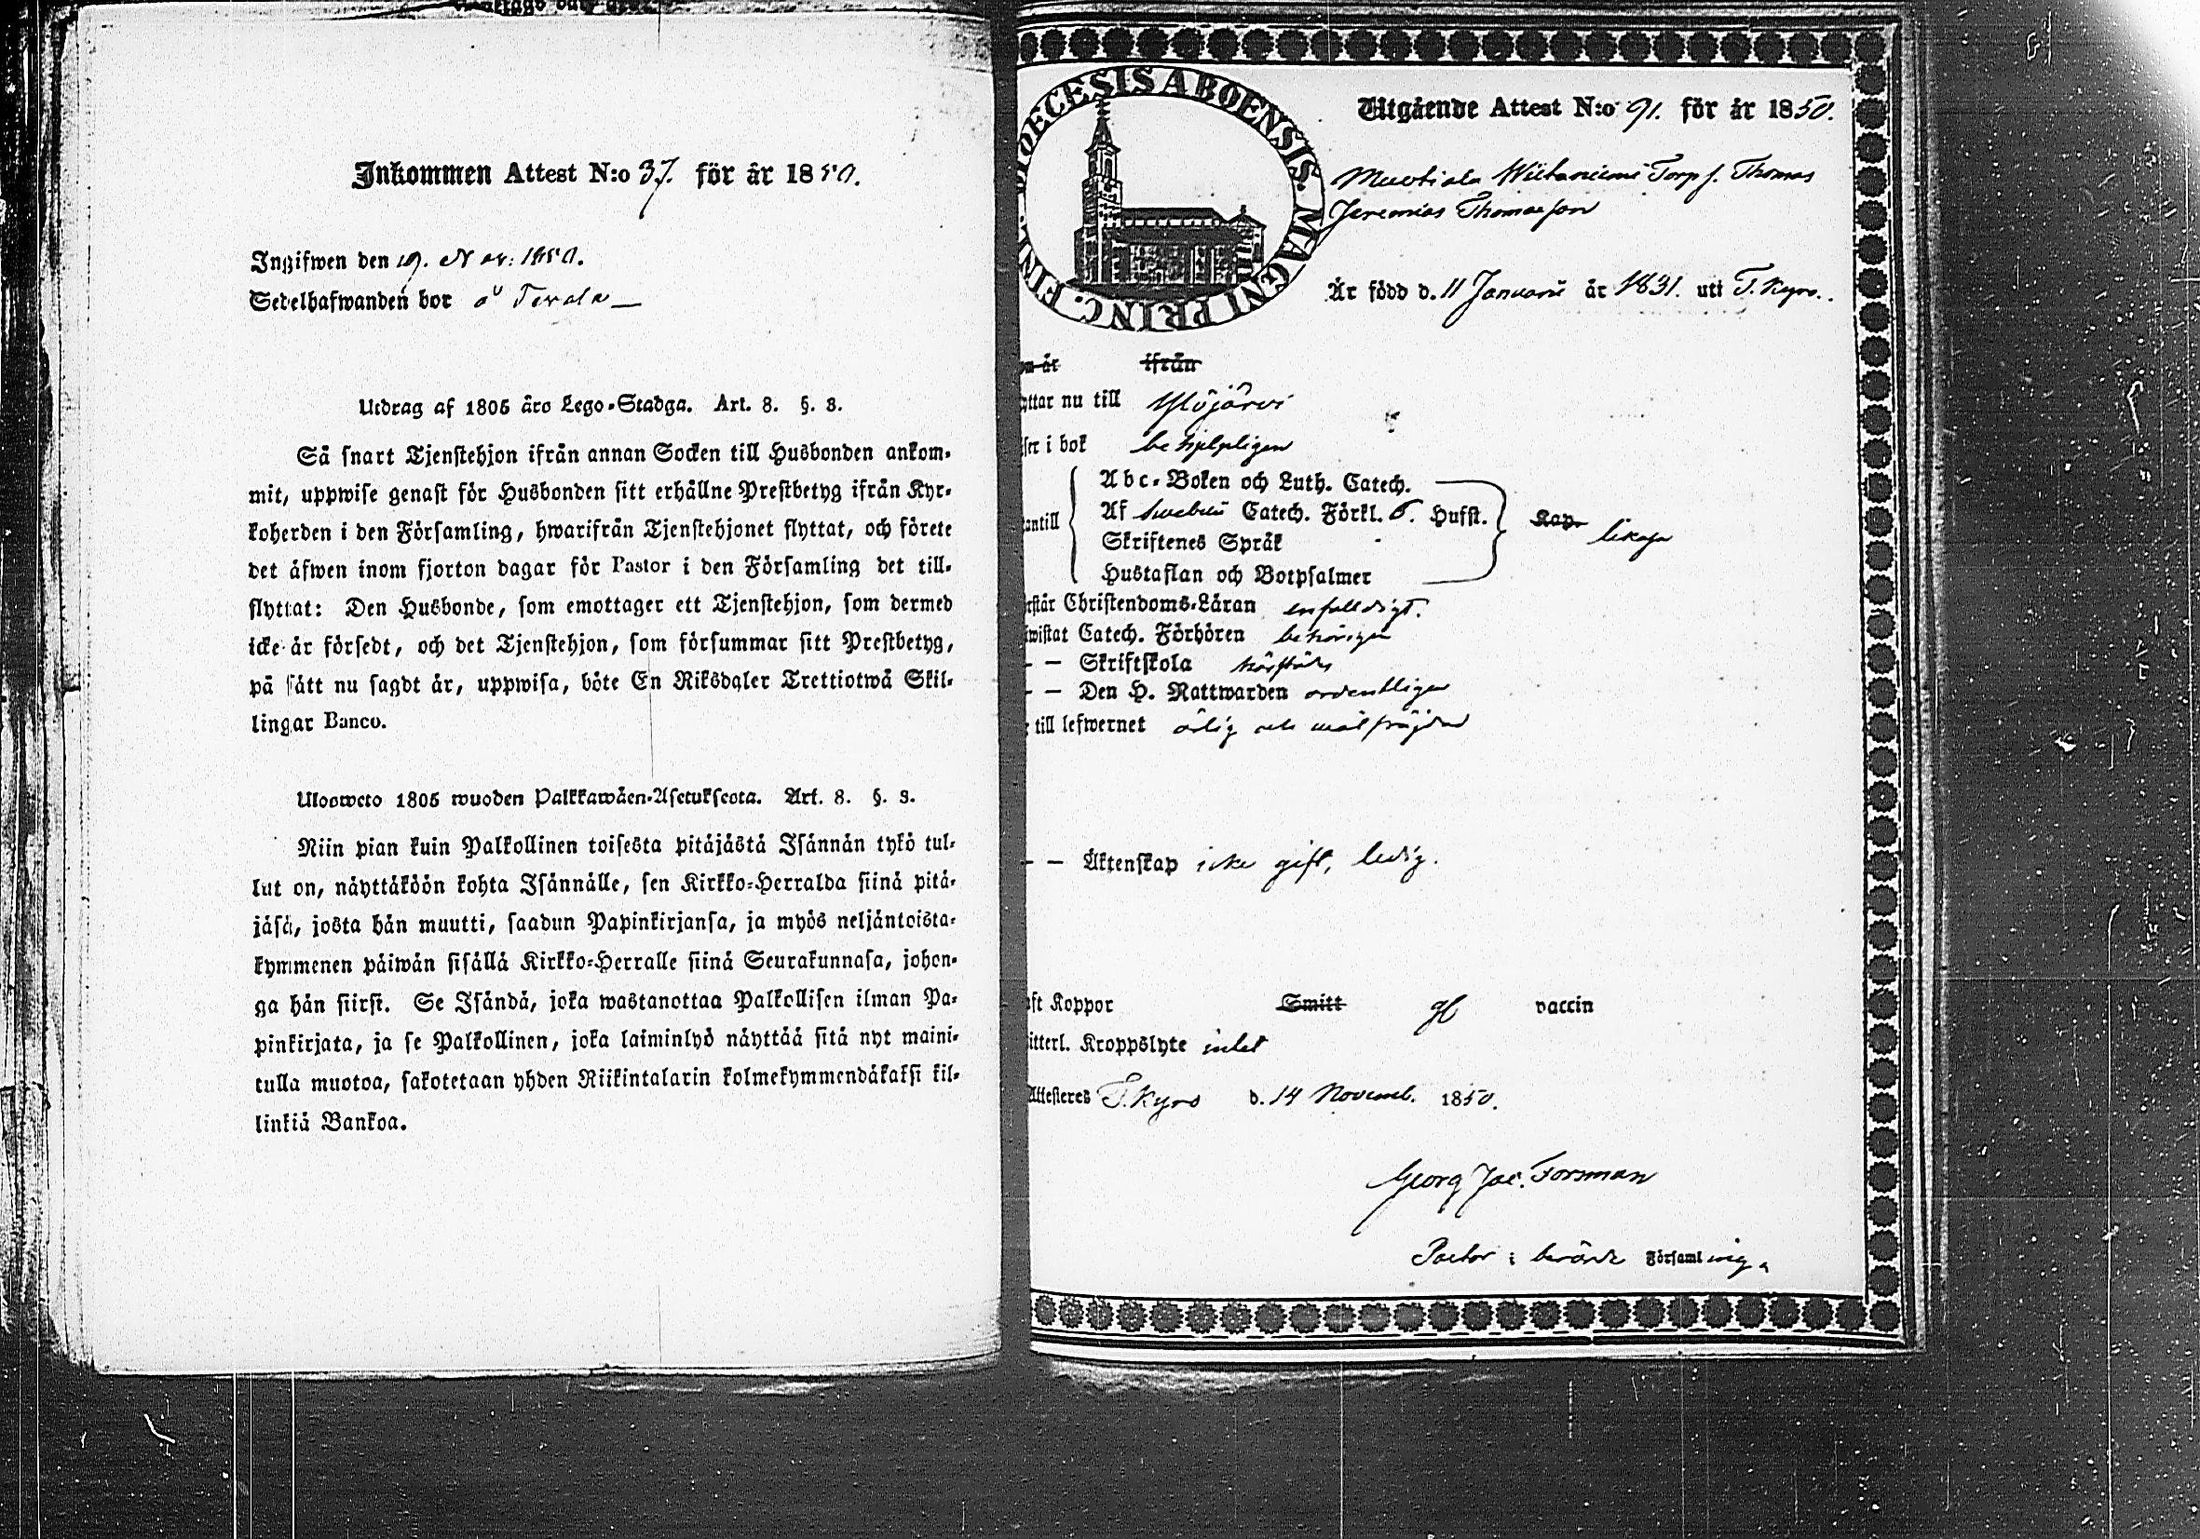 Inkommen Attest N:o 37. för år 1850.
Ingifwen den 19. Nov: 1850.
Sedelhafwanden bor å Terala
Utdrag af 1805 års Lego-Stadga. Art. 8. §. 3.
Så snart Tjenstehjon ifrån annan Socken till Husbonden ankom-
mit, uppwise genast för Husbonden sitt erhållne Prestbetyg ifrån Kyr-
koherden i den Församling, hwarifrån Tjenstehjonet flyttat, och förete
det äfwen inom fjorton dagar för Pastor i den Församling det till-
flyttat: Den Husbonde, som emottager ett Tjenstehjon, som dermed
icke är försedt, och det Tjenstehjon, som försummar sitt Prestbetyg,
på sätt nu sagdt är, uppwisa, böte En Riksdaler Trettiotwå Skil-
lingar Banco.
Ulosweto 1805 wuoden Palkkawäen-Asetuksesta. Art. 8. §. 3.
Niin pian kuin Palkollinen toisesta pitäjästä Isännän tykö tul-
lut on, näyttäköön kohta Isännälle, sen Kirkko-Herralda siinä pitä-
jäsä, josta hän muutti, saadun Papinkirjansa, ja myös neljäntoista-
kymmenen päiwän sisällä Kirkko-Herralle siinä Seurakunnasa, johon-
ga hän siirst. Se Isändä, joka wastanottaa Palkollisen ilman Pa-
pinkirjata, ja se Palkollinen, joka laiminlyö näyttää sitä nyt maini-
tulla muotoa, sakotetaan yhden Riikintalarin kolmekymmendäkaksi kil-
linkiä Bankoa.
DIOECESIS ABOENSIS. MAGNI PRINC. FINL.
Utgående Attest N:o 91. för år 1850.
Torp s. Thomas
Jeremias Thomasson
Är född d. 11 Januarii år 1831. uti T. Kyro.
om år ifrån
yttar nu till Ylöjärvi
ser i bok behjelpligen
Abc-Boken och Luth. Catech.
antill Af Swebilii Catech. Förkl. 6. Hufst. Kap. likaså
Skriftenes Språk
Hustaflan och Botpsalmer
rstår Christendoms-Läran enfalldigt.
wistat Catech. Förhören behörigen
- - Skriftskola
- - Den H. Nattwarden ordentligen
till lefwernet ärlig och wälfräjdad
- - Äktenskap icke gift, ledig.
ft Koppor Smitt gl vaccin
itterl. Kroppslyte intet
Attesteres T. Kyro d. 14 Novemb. 1850.
Georg Jac. Forsman
Pastor i berörde Församling.